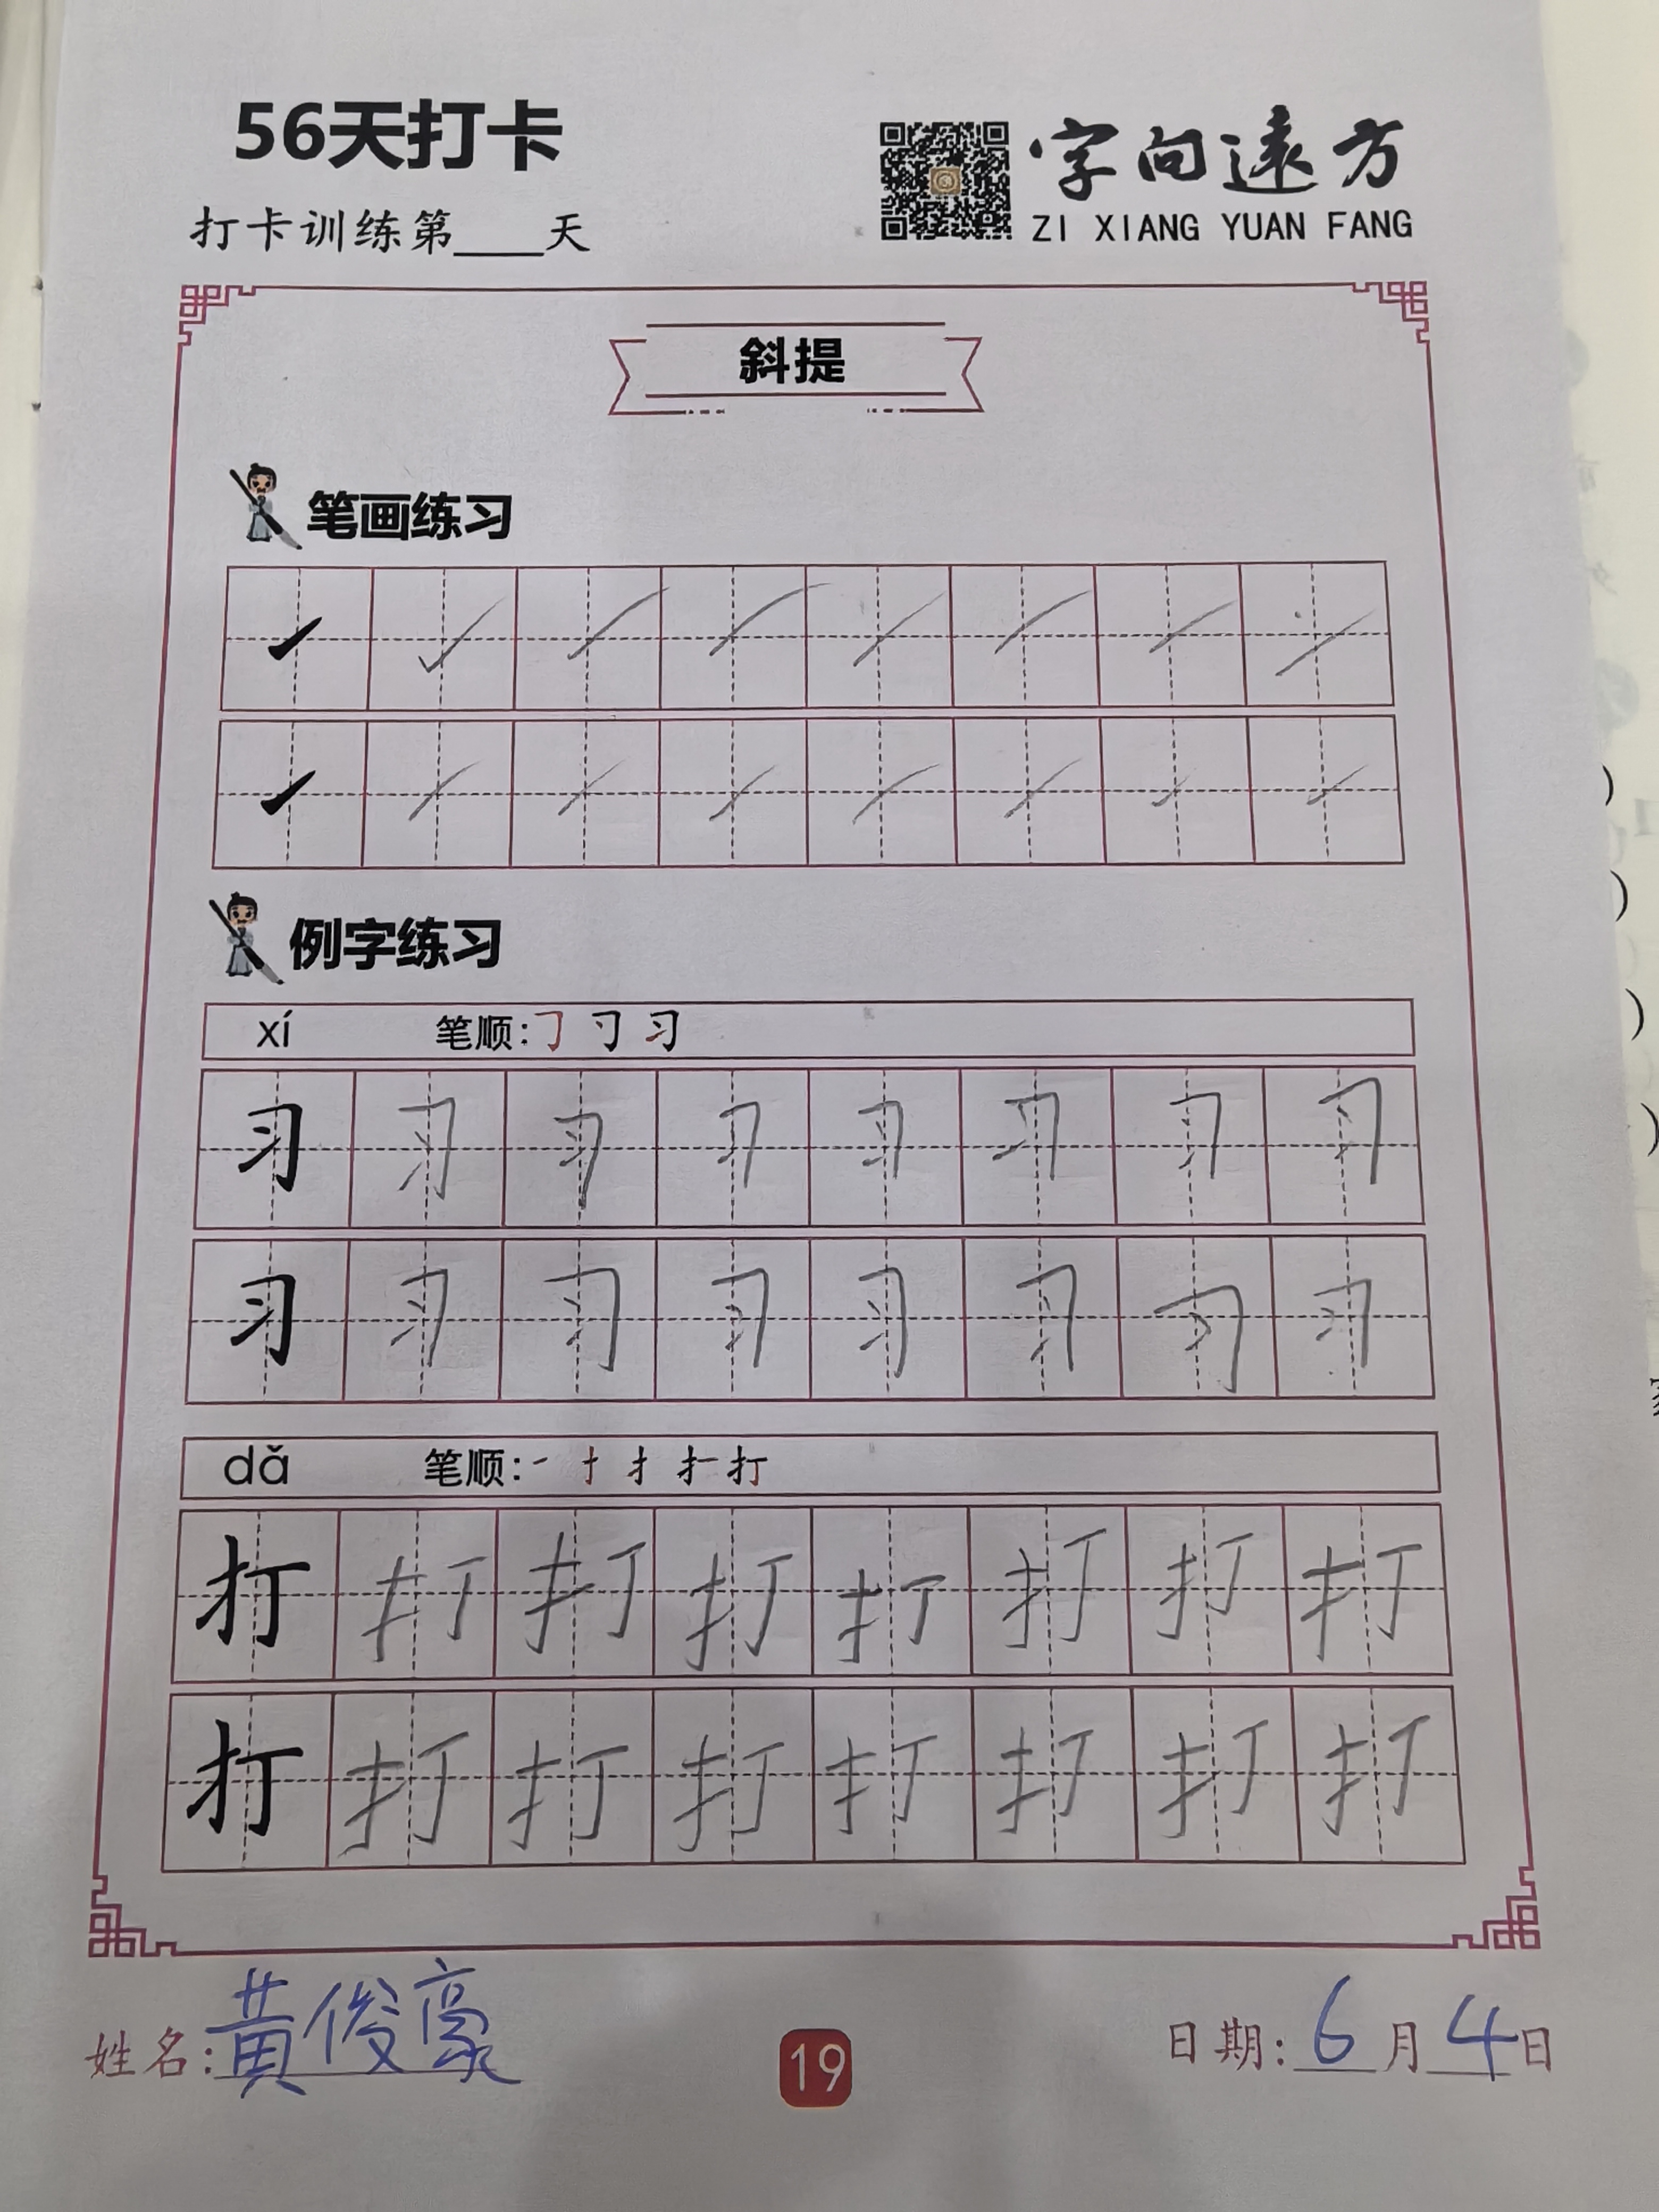 56天打卡
字向遠方
打卡训练第____天
ZI XIANG YUAN FANG
斜提
笔画练习
例字练习
xí 笔顺: ㇆ 习 习
习 习 习 习 习 习 习 习
习 习 习 习 习 习 习 习
dǎ 笔顺: 一 扌 扌 扌 打
打 打 打 打 打 打 打 打
打 打 打 打 打 打 打 打
姓名:黄俊豪
19
日期:6月4日